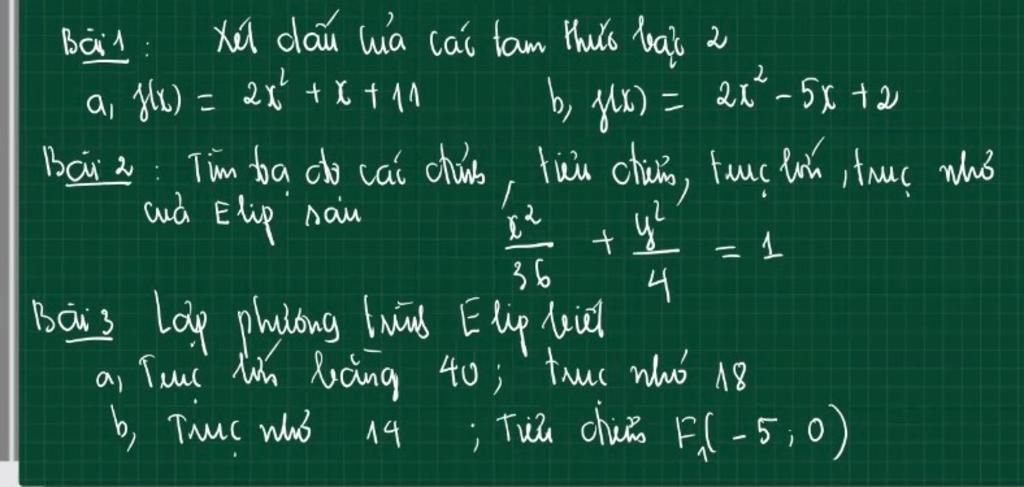 Bài 1 : Xét dấu của các tam thức bậc 2
a, f(x) = 2x² + x + 11 b, f(x) = 2x² - 5x + 2
Bài 2 : Tìm tọa độ các đỉnh, tiêu điểm, trục lớn, trục nhỏ
của Elip sau x²/36 + y²/4 = 1
Bài 3 Lập phương trình Elip biết
a, Trục lớn bằng 40 ; trục nhỏ 18
b, Trục nhỏ 14 ; Tiêu điểm F₁(-5 ; 0)